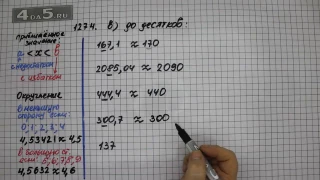 4DA5.RU
1274. в) до десятков:
приближённое
значение:
а < x < в
с недостатком
с избытком
Округление
в меньшую
сторону если:
0, 1, 2, 3, 4
4,53421 ≈ 4,5
в большую ст.
если: 5,6,7,8,9
4,5632 ≈ 4,6
167,1 ≈ 170
2085,04 ≈ 2090
444,4 ≈ 440
300,7 ≈ 300
137